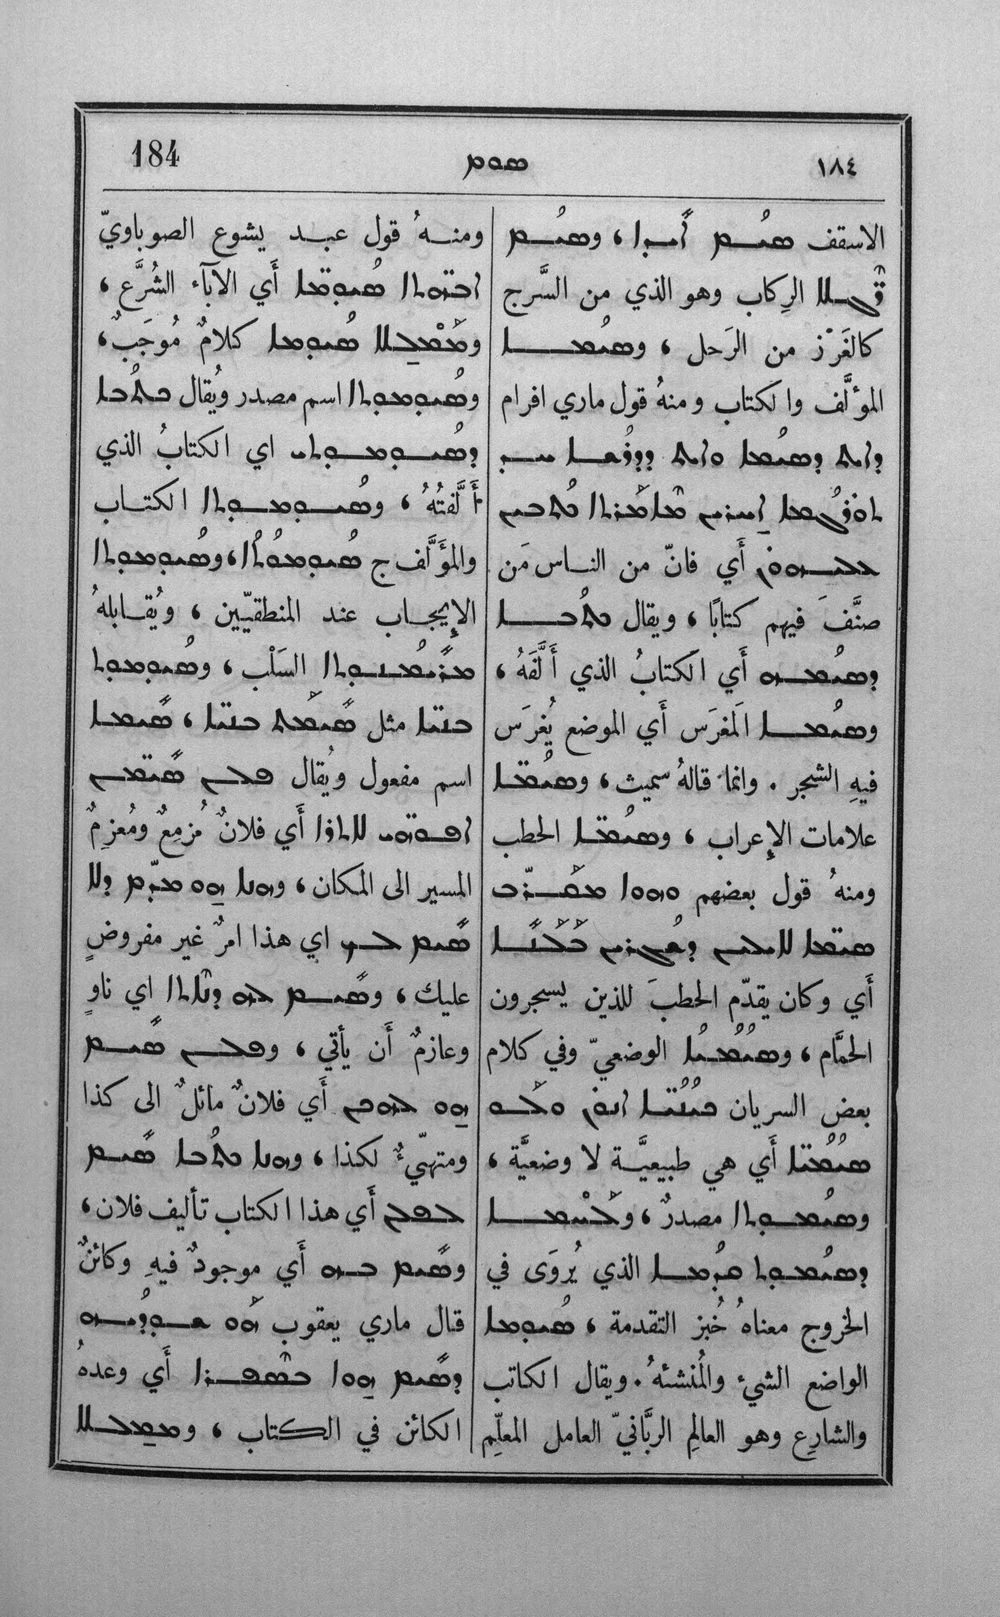 184
ܣܘܡ
١٨٤
الاسقف ܣܝܳܡ ܐܺܝܕܐ ، ܘܣܝܳܡ
ܪ̈ܓܠܐ الرِكاب وهو الذي من السَّرج
كالغَرْز من الرَحل ، ܘܣܝܳܡܐ
المؤَلَّف والكتاب ومنهُ قول ماري افرام
ܕܐܝܬ ܕܣܝܳܡܐ ܘܐܝܬ
أَي فانّ من الناس مَن
صنَّفَ فيهم كتابًا ، ويقال ܟܬܳܒܐ
ܕܣܝܳܡܗ أَي الكتابُ الذي أَلَّفَهُ ،
ܘܣܝܳܡܐ المَغرَس أَي الموضع يُغرَس
فيهِ الشجر . وانما قالهُ سميث ، ܘܣܝܳܡ̈ܐ
علامات الإِعراب ، ܘܣܝܳܡ̈ܐ الحطب
ومنهُ قول بعضهم ܘܗܘܐ ܡܩܰܪܒ
ܣܝܡ̈ܐ ܠܐܝܠܝܢ ܕܫܳܓܪܝܢ
أَي وكان يقدّم الحطبَ للذين يسجرون
الحمَّام ، ܘܣܝܳܡܳܝܐ الوضعيّ وفي كلام
بعض السريان ܟܝܳܢܳܝ̈ܐ ܐܢܘܢ ܘܠܰܘ
ܣܝܳܡܳܝ̈ܐ أَي هي طبيعيَّة لا وضعيَّة ،
ܘܣܝܳܡܘܬܐ مصدرٌ ، ܘܠܰܚܡܐ
ܕܣܝܳܡܘܬ ܩܕܳܡܐ الذي يُروَى في
الخروج معناهُ خُبز التقدمة ، ܣܳܝܘܡܐ
الواضع الشيء والمُنشئهُ . ويقال الكاتب
والشارِع وهو العالِم الربَّانيّ العامل المعلِّم
ومنهُ قول عبد يشوع الصوباويّ
ܐܒܗ̈ܬܐ ܣܳܝܘܡ̈ܐ أَي الآبآء الشُرَّع ،
ܘܡܰܡܠܠܐ ܣܳܝܘܡܐ كلامٌ مُوجَبٌ ،
ܘܣܳܝܘܡܘܬܐ اسم مصدر ويُقال ܟܬܳܒܐ
ܕܣܳܝܘܡܘܬܝ اي الكتابُ الذي
أَلَّفتُهُ ، ܘܣܳܝܘܡܘܬܐ الكتاب
والمؤَلَّف ج ܣܳܝܘܡܘܳܬܐ ، ܘܣܳܝܘܡܘܬܐ
الإِيجاب عند المنطقيّين ، ويُقابلهُ
ܡܪܺܝܡܳܢܘܬܐ السَلْب ، ܘܣܳܝܘܡܘܬ
ܒܢܝ̈ܐ مثل ܣܺܝܡܰܬ ܒܢܝ̈ܐ ، ܣܺܝܡܐ
اسم مفعول ويُقال ܦܠܢ ܣܺܝܡܝܢ
ܐܦܘ̈ܗܝ ܠܐܬܪܐ أَي فلانٌ مُزمِعٌ ومُعزِمٌ
المسير الى المكان ، ܘܗܢܐ ܗܘ ܡܕܡ ܕܠܐ
ܣܺܝܡ ܥܠܝܟ اي هذا امرٌ غير مفروضٍ
عليك ، ܘܣܺܝܡ ܠܗ ܕܢܐܬܐ اي ناوٍ
وعازمٌ أَن يأتي ، ܘܦܠܢ ܣܺܝܡ
ܗܘ ܠܗܟܢ أَي فلانٌ مائلٌ الى كذا
ومتهيّءٌ لكذا ، ܘܗܢܐ ܟܬܳܒܐ ܣܺܝܡ
ܠܦܠܢ أَي هذا الكتاب تأليف فلان ،
ܘܣܺܝܡ ܒܗ أَي موجودٌ فيهِ وكائنٌ
قال ماري يعقوب ܗܰܘ ܫܘܘܕܝܗ
ܕܣܺܝܡ ܗܘܐ ܒܣܶܦܪܐ أَي وعدهُ
الكائن في الكتاب ، ܘܡܡܠܠܐ